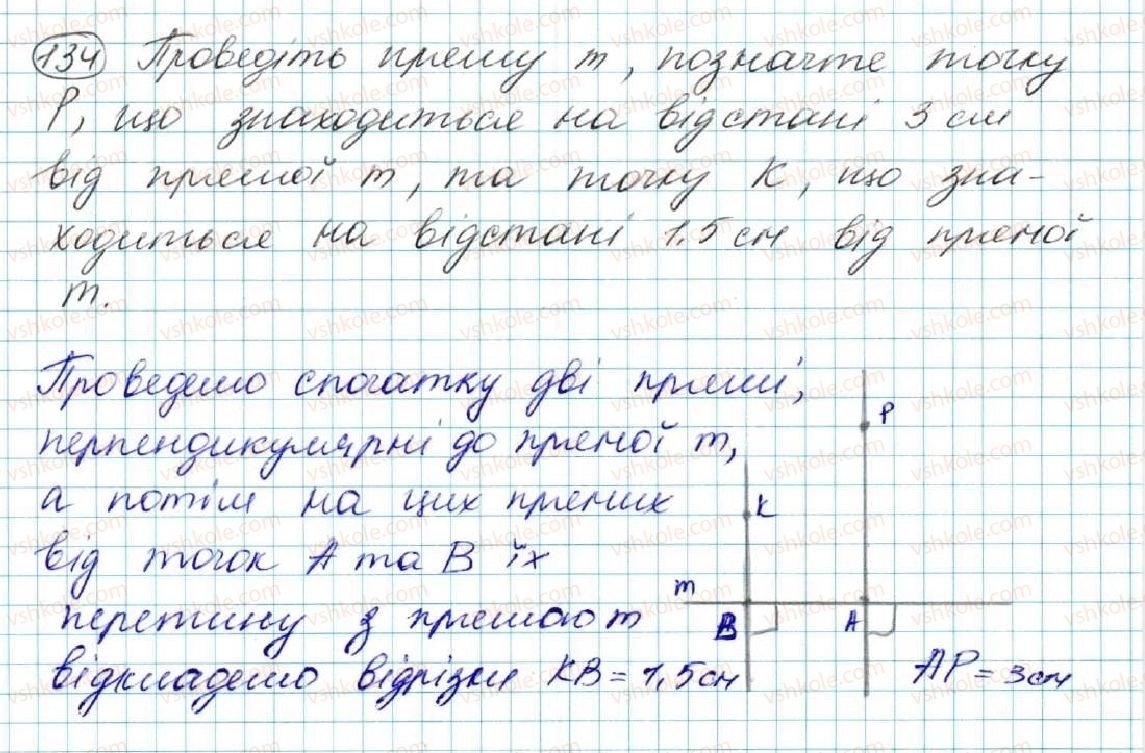 134 Проведіть пряму m, позначте точку
P, що знаходиться на відстані 3 см
від прямої m, та точку K, що зна-
ходиться на відстані 1,5 см від прямої
m.
Проведемо спочатку дві прямі,
перпендикулярні до прямої m,
а потім на цих прямих
від точок A та B їх
перетину з прямою m
відкладемо відрізки KB = 1,5 см
AP = 3 см
P
K
m
B
A